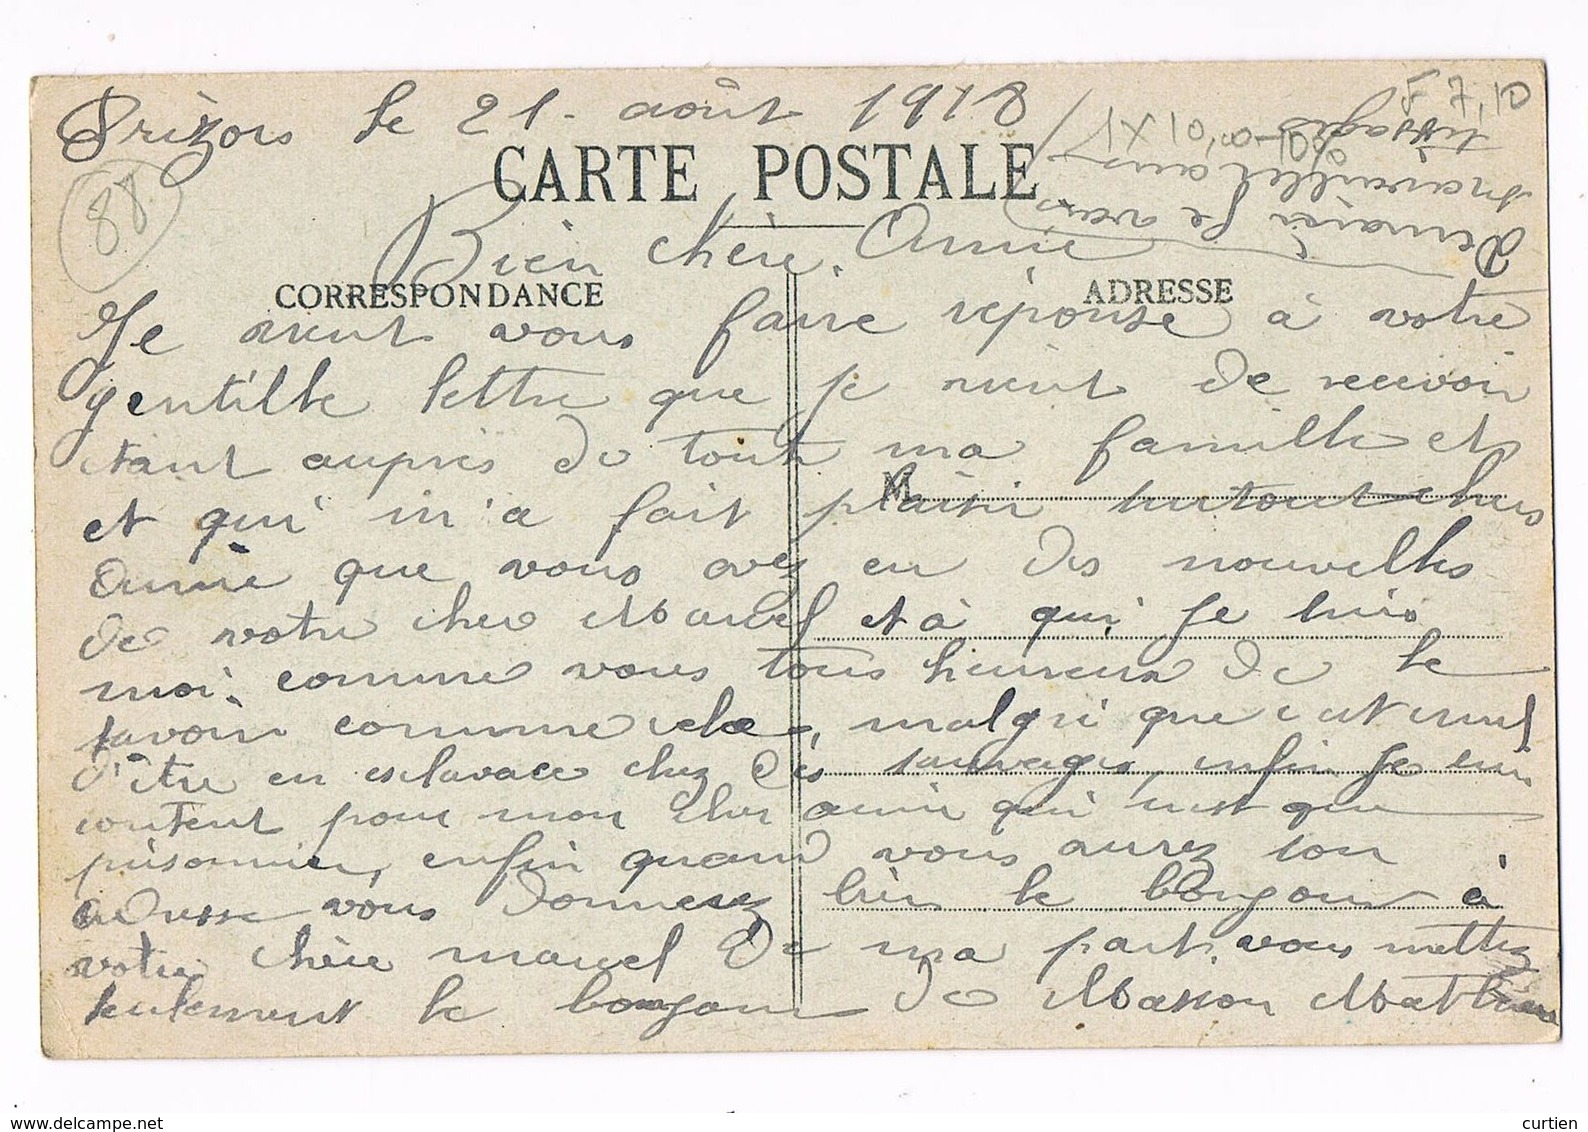 Prizors le 21. août 1918
88
CARTE POSTALE
Bien chère Annie
CORRESPONDANCE
ADRESSE
Je vient vous faire réponse à votre
gentille lettre que je vient de recevoir
etant auprès de tout ma famille et
M
et qui m'a fait plaisir surtout cher
Annie que vous avez eu des nouvelles
de votre cher Marcel et à qui je suis
moi. comme vous tous heureux de le
savoir comme cela, malgré que c'est cruel
d'être en esclavace chez des sauvages, enfin je suis
content pour mon cher amie qui n'est que
prisonnier, enfin quand vous aurez son
adresse vous donnerez bien le bonjour à
votre chère marcel de ma part. vous mettez
seulement le bonjour de Masson Mathieu
Demain je veux
travailler aux
tissages
curtien